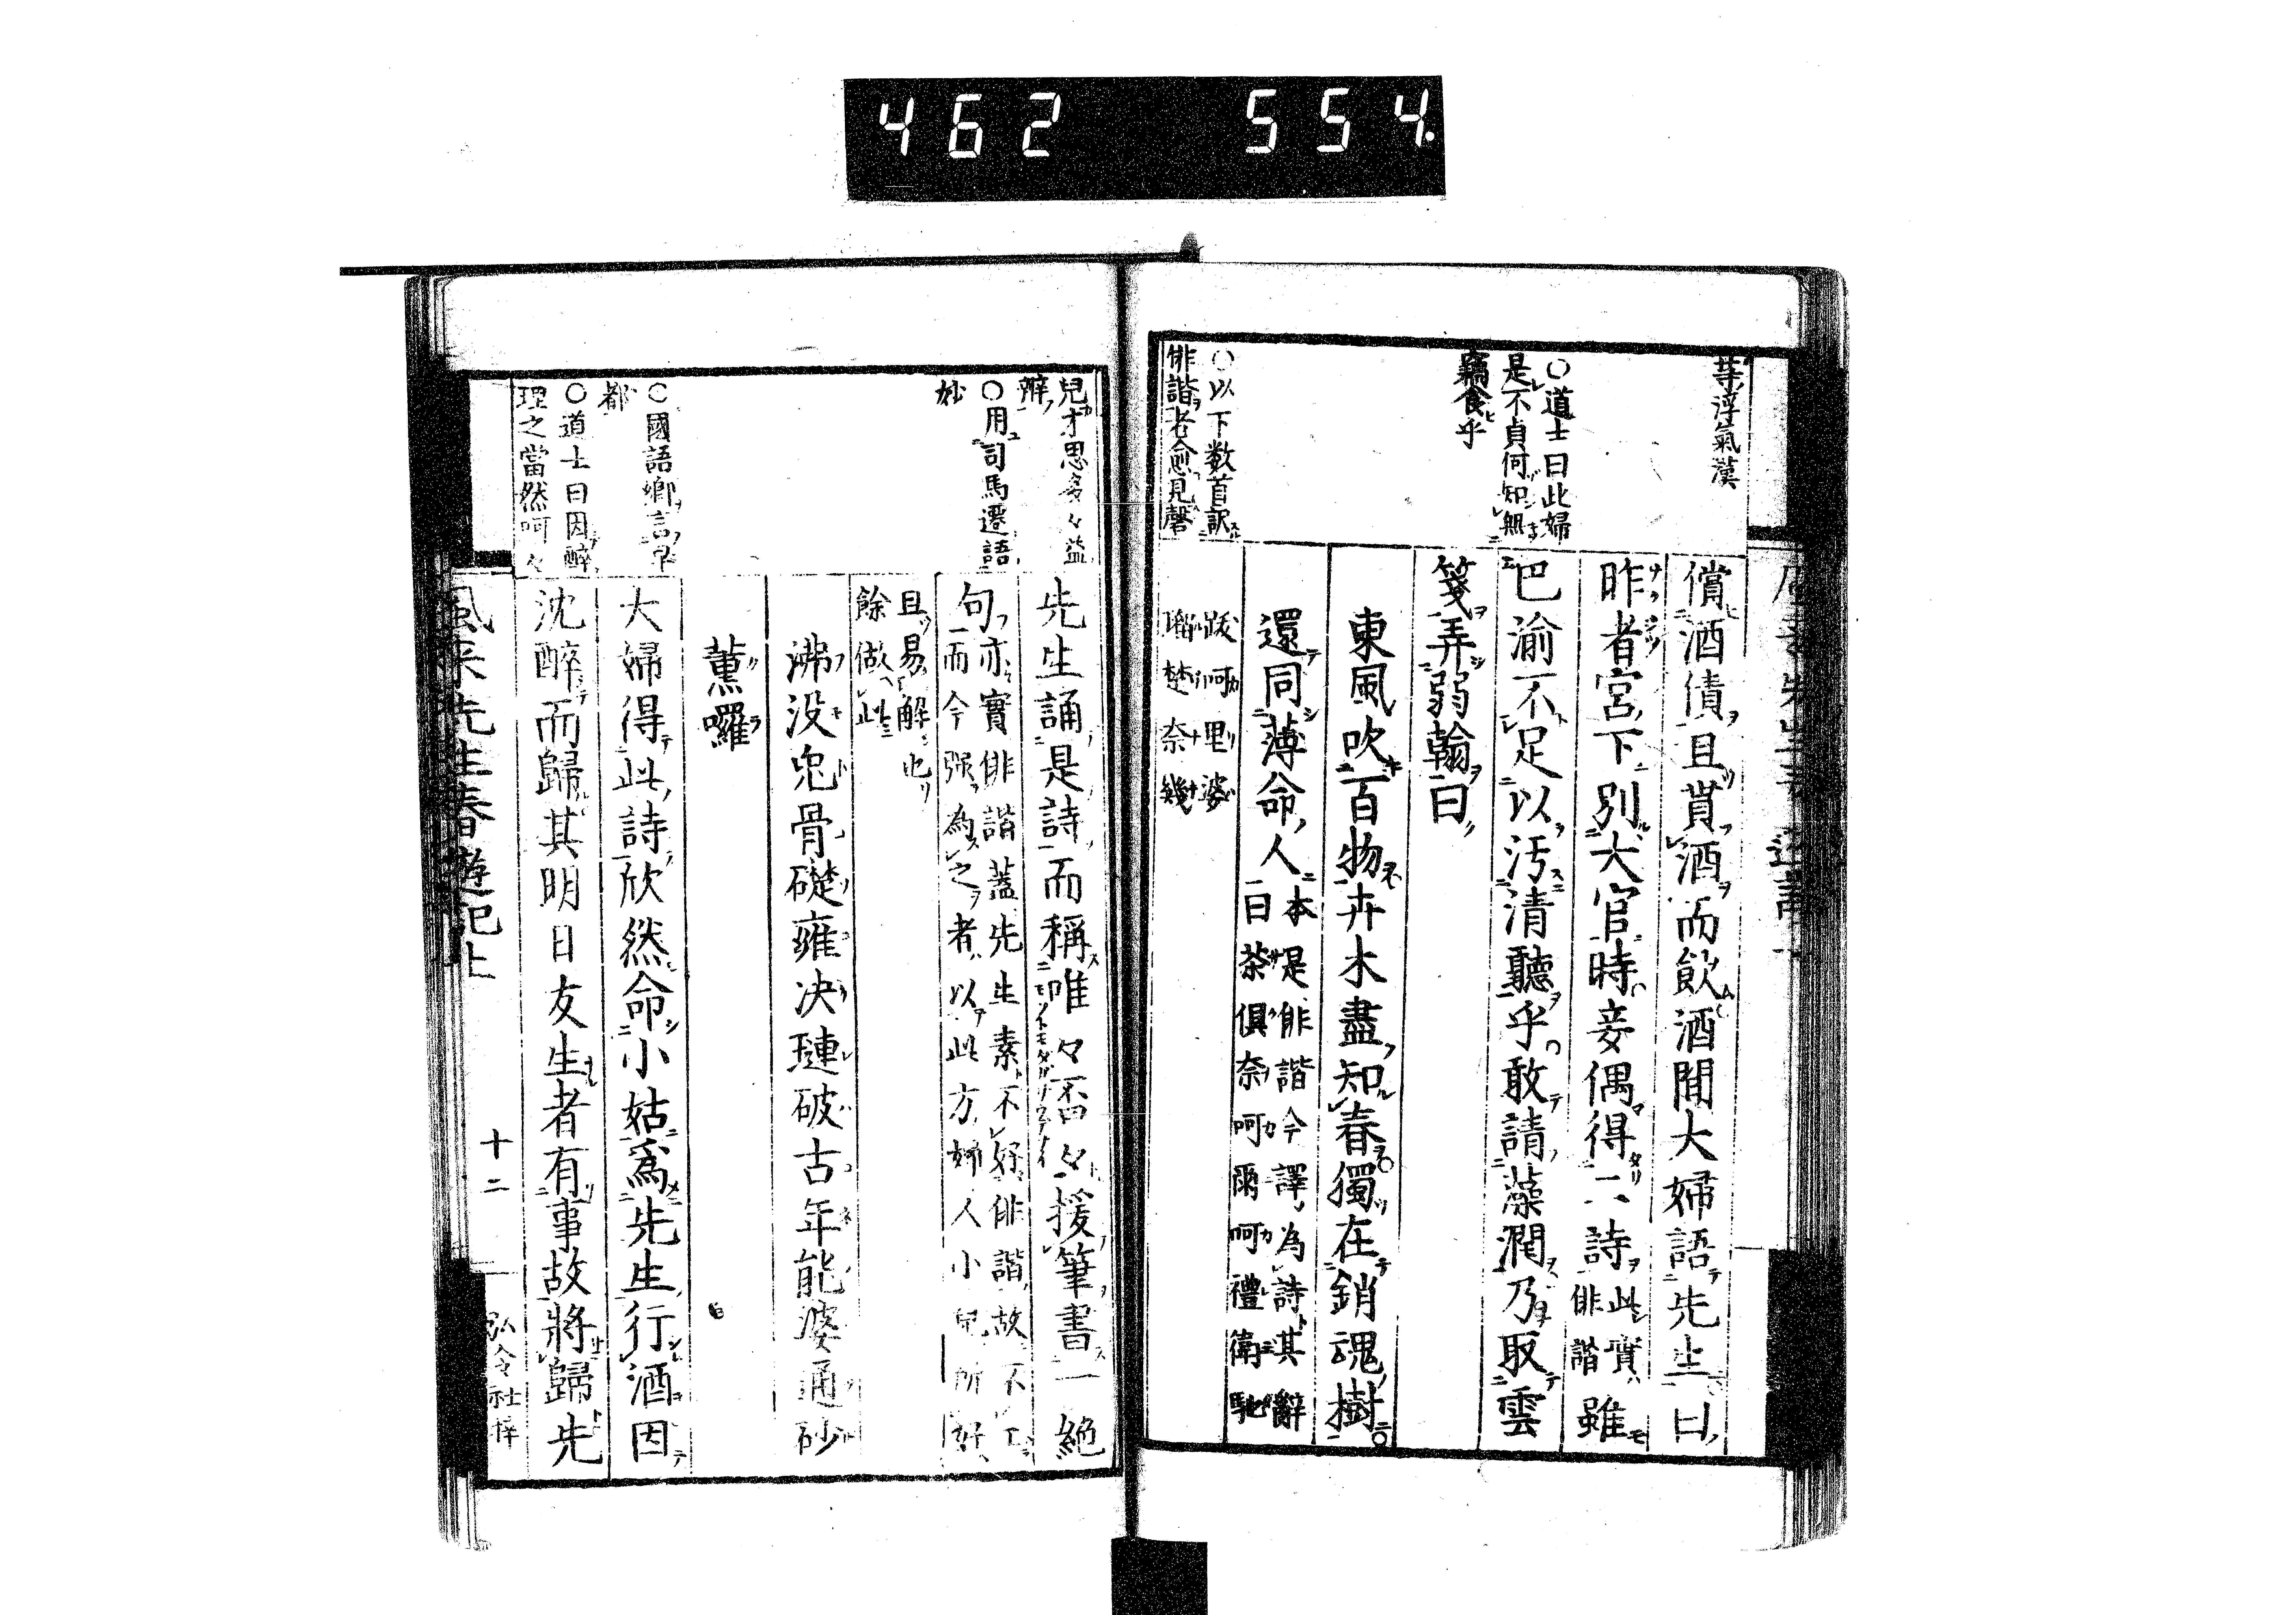 462 554
等浮氣漢
○道士曰此婦
是不貞何知無
竊食乎
○以下数首訳
俳諧者愈見馨
償酒債且貰酒而飲酒間大婦語先生曰
昨者宮下別大官時妾偶得二詩此實俳諧雖
巴渝不足以汚清聽乎敢請藻潤乃取雲
箋弄弱翰曰
東風吹百物卉木盡知春獨在銷魂樹
還同薄命人本是俳諧今譯為詩其辭
曰茶俱奈呵爾呵禮衛馳
跋呵里婆
瑙楚奈幾
兒才思多々益
辨
○用司馬遷語
妙
○國語鄉言
都
○道士曰因醉
理之當然呵々
先生誦是詩而稱唯々否々援筆書一絶
句亦實俳諧蓋先生素不好俳諧故不工
而今强為之者以此方婦人小兒所好
且易解也
餘做此
沸没兜骨礎雍决璉破古年能婆通砂
薫囉
大婦得此詩欣然命小姑爲先生行酒因
沈醉而歸其明日友生者有事故將歸先
風来先生春遊記上
十二
社梓